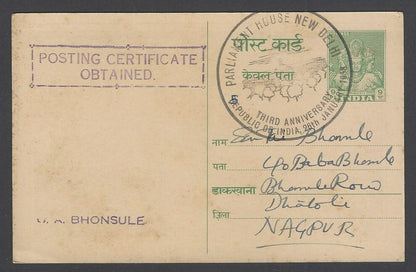 POSTING CERTIFICATE
OBTAINED.
पोस्ट कार्ड
केवल पता
PARLIAMENT HOUSE NEW DELHI
THIRD ANNIVERSARY
REPUBLIC OF INDIA, 26th JANUARY 1953
INDIA
नाम Bhonsle
पता c/o Baba Bhonsle
डाकखाना Bhonsle Row
Dhatoli
ज़िला NAGPUR
BHONSULE